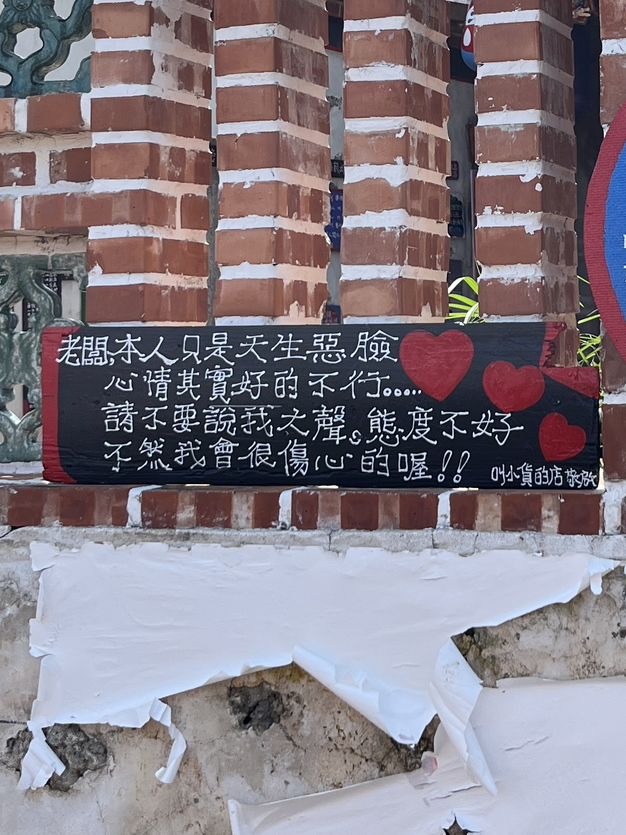 老闆,本人只是天生惡臉
心情其實好的不行.....
請不要說我大聲。態度不好
不然我會很傷心的喔!!
叫小貨的店 敬啟